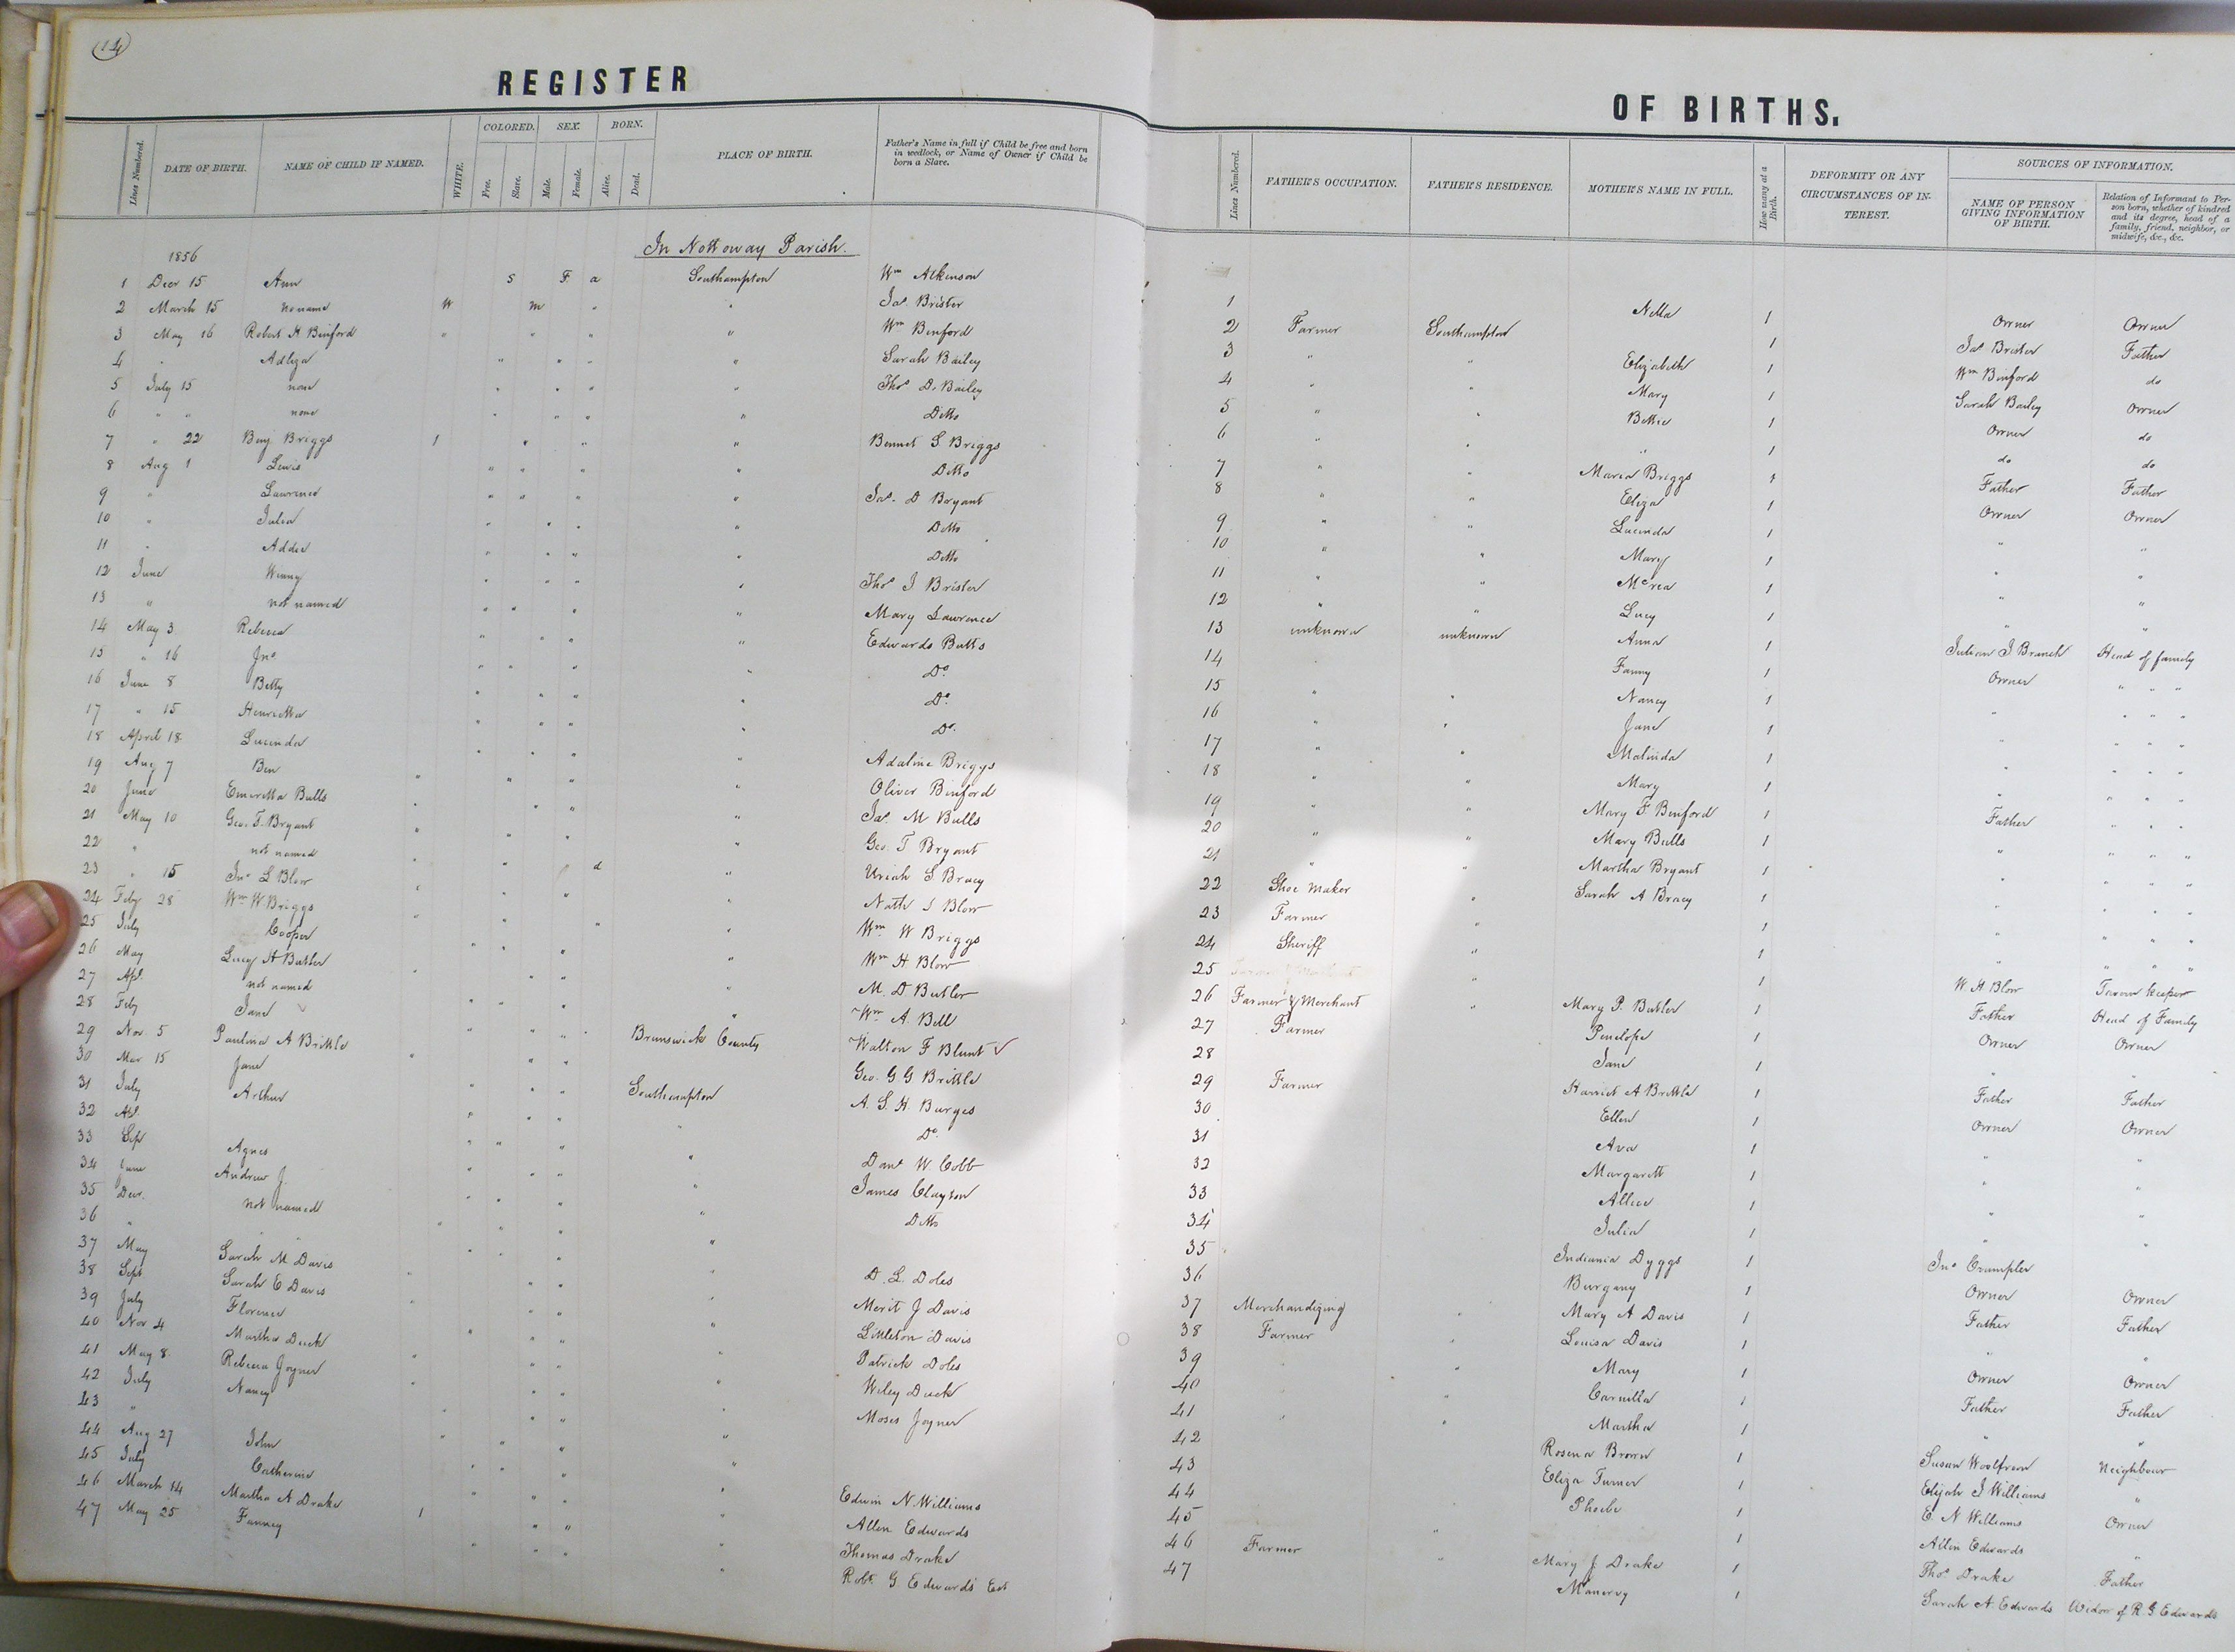 14
REGISTER
Lines Numbered. DATE OF BIRTH. NAME OF CHILD IF NAMED. WHITE. COLORED. Free. Slave. SEX. Male. Female. BORN. Alive. Dead. PLACE OF BIRTH. Father's Name in full if Child be free and born in wedlock, or Name of Owner if Child be born a Slave.
1856 In Nottoway Parish.
1 Decr 15 Ann S F a Southampton Wm Atkinson
2 March 15 no name W m " " Jas. Brister
3 May 16 Robert H Binford " " " " Wm Binford
4 " Adliza " " " " Sarah Bailey
5 July 15 none " " " " Thos D. Bailey
6 " " none " " " " Ditto
7 " 22 Benj Briggs 1 " " " Bennet S Briggs
8 Aug 1 Lewis " " " " Ditto
9 " Lawrence " " " " Jas. D Bryant
10 " Julia " " " " Ditto
11 " Addie " " " " Ditto
12 June Winny " " " " Thos J Brister
13 " not named " " " " Mary Lawrence
14 May 3 Rebecca " " " " Edwards Butts
15 " 16 Jno. " " " " Do
16 June 8 Betty " " " " Do.
17 " 15 Henrietta " " " " Do.
18 April 18 Lucinda " " " " Adaline Briggs
19 Aug 7 Ben " " " " Oliver Binford
20 June Emeretta Bulls " " " " Jas. M Bulls
21 May 10 Geo. T. Bryant " " " " Geo. T Bryant
22 " not named " " d " Uriah S Bracy
23 " 15 Jno L Blow " " " " Nath S Blow
24 Feby 28 Wm W. Briggs " " " " Wm W Briggs
25 July Cooper " " " " Wm H. Blow
26 May Lucy H Butler " " " " M. D Butler
27 Apl. not named " " " " Wm A. Bell
28 Feby Jane " " " Brunswick County Walton F Blunt
29 Nov. 5 Paulina A Brittle " " " Geo. G G. Brittle
30 Mar 15 Jane " " " Southampton A. S. H. Burges
31 July Arthur " " " " Do.
32 Apl. " " " " Danl W. Cobb
33 Sep Agnes " " " " James Clayton
34 June Andrew J. " " " " Ditto
35 Decr. not named " " " "
36 " " " " " " " D. L. Doles
37 May Sarah M Davis " " " " Merit J Davis
38 Sept Sarah E Davis " " " " Littleton Davis
39 July Florence " " " " Patrick Doles
40 Nov 4 Martha Duck " " " " Wiley Duck
41 May 8 Rebecca Joyner " " " " Moses Joyner
42 July Nancy " " " "
43 " " " " "
44 Aug 27 John " " " " Edwin N. Williams
45 July Catherine " " " " Allen Edwards
46 March 14 Martha A Drake 1 " " " Thomas Drake
47 May 25 Fanney " " " " Robt. G. Edwards Est
OF BIRTHS.
Lines Numbered. FATHER'S OCCUPATION. FATHER'S RESIDENCE. MOTHER'S NAME IN FULL. How many at a Birth. DEFORMITY OR ANY CIRCUMSTANCES OF INTEREST. SOURCES OF INFORMATION. NAME OF PERSON GIVING INFORMATION OF BIRTH. Relation of Informant to Person born, whether of kindred and its degree, head of a family, friend, neighbor, or midwife, &c., &c.
1 Nella 1 Owner Owner
2 Farmer Southampton 1 Jas Brister Father
3 " " Elizabeth 1 Wm Binford do
4 " " Mary 1 Sarah Bailey Owner
5 " " Bettie 1 Owner do
6 " " " 1 do do
7 " " Maria Briggs 1 Father Father
8 " " Eliza 1 Owner Owner
9 " " Lucinda 1 " "
10 " " Mary 1 " "
11 " " Mcrea 1 " "
12 " " Lucy 1 " "
13 unknown unknown Anna 1 Julian J Branch Head of family
14 Fanny 1 Owner " " "
15 " " Nancy 1 " " " "
16 " " Jane 1 " " " "
17 " " Malinda 1 " " " "
18 " " Mary 1 " " " "
19 " " Mary F. Binford 1 Father " " "
20 " " Mary Bulls 1 " " " "
21 " " Martha Bryant 1 " " " "
22 Shoe maker " Sarah A Bracy 1 " " " "
23 Farmer " 1 " " " "
24 Sheriff " 1 " " " "
25 " 1 W. H Blow Tavern keeper
26 Farmer & Merchant " Mary P. Butler 1 Father Head of Family
27 Farmer Penelope 1 Owner Owner
28 Jane 1 " "
29 Farmer Harriet A Brittle 1 Father Father
30 Ellen 1 Owner Owner
31 Ava 1 " "
32 Margarett 1 " "
33 Allice 1 " "
34 Julia 1 " "
35 Indiania Dyggs 1 Jno Crumpler
36 Burgany 1 Owner Owner
37 Merchandizing " Mary A Davis 1 Father Father
38 Farmer Louisa Davis 1 " "
39 " Mary 1 Owner Owner
40 " " Carnilla 1 Father Father
41 " " Martha 1 " "
42 Rosena Brown 1 Susan Woolfrom Neighbour
43 Eliza Turner 1 Elijah J Williams "
44 Phoebe 1 E. N Williams Owner
45 " 1 Allen Edwards "
46 Farmer " Mary J Drake 1 Thos Drake Father
47 Manervy 1 Sarah A Edwards Widow of R. G Edwards